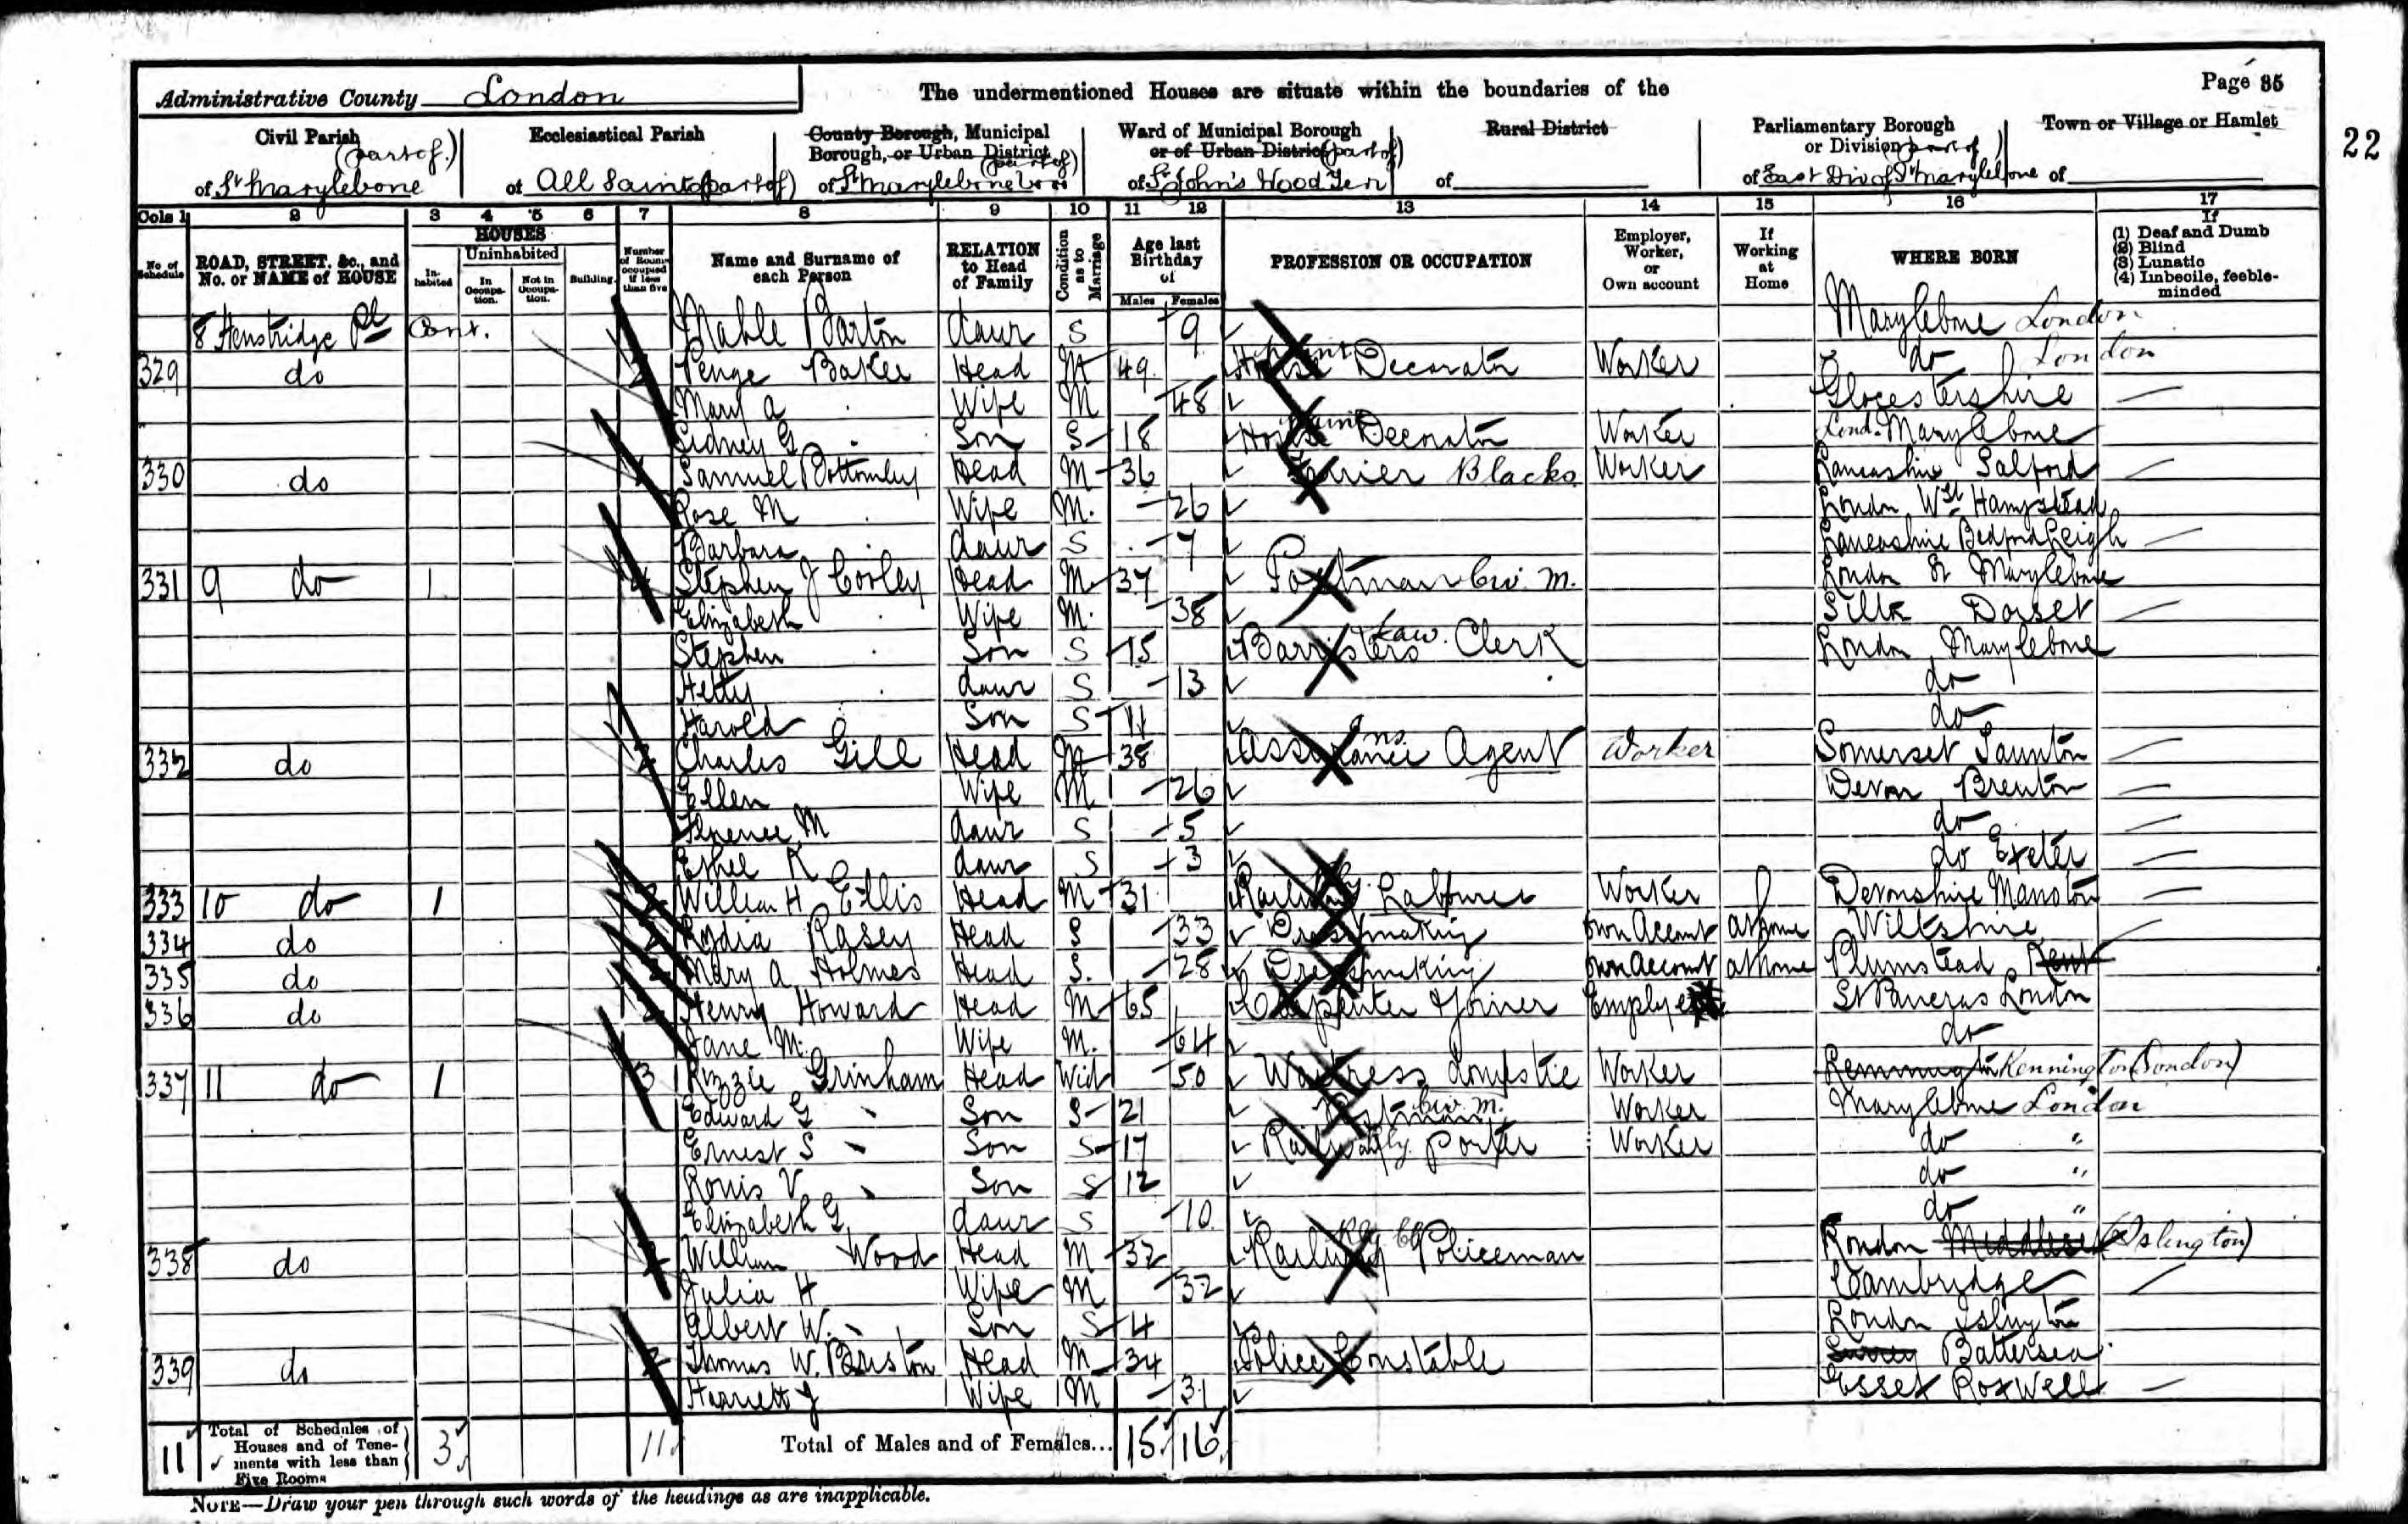 Page 35
Administrative County London The undermentioned Houses are situate within the boundaries of the
22
Civil Parish (part of) of St Marylebone
Ecclesiastical Parish of All Saints (part of)
County Borough, Municipal Borough, or Urban District (part of) of St Marylebone
Ward of Municipal Borough or of Urban District (part of) of St John's Wood Ter
Rural District of
Parliamentary Borough or Division part of of East Div of St Marylebone
Town or Village or Hamlet of
Cols 1 2 3 4 5 6 7 8 9 10 11 12 13 14 15 16 17
No. of Schedule
ROAD, STREET, &c., and No. or NAME of HOUSE
HOUSES
In-habited
Uninhabited
In Occupa-tion.
Not in Occupa-tion.
Building.
Number of Rooms occupied if less than five
Name and Surname of each Person
RELATION to Head of Family
Condition as to Marriage
Age last Birthday of
Males Females
PROFESSION OR OCCUPATION
Employer, Worker, or Own account
If Working at Home
WHERE BORN
If (1) Deaf and Dumb (2) Blind (3) Lunatic (4) Imbecile, feeble-minded
8 Henstridge Pl Cont. Mable Barton daur S 9 Marylebone London
329 do 2 Baker Head M 49 House Decorator Worker do London
Mary A Wife M 48 Glocestershire
Sidney G Son S 18 House Decorator Worker Lond. Marylebone
330 do Samuel Bottomley Head M 36 Farrier Blacks Worker Lancashire Salford
Rose M Wife M. 26 London Wst Hampstead
Barbara daur S 7 Lancashire Bedford Leigh
331 9 do 1 4 Stephen J Corley Head M 37 Postman Civ. M. London St Marylebone
Elizabeth Wife M. 38 Silk Dorset
Stephen Son S 15 Barristers Law. Clerk London Marylebone
Hetty daur S 13 do
Harold Son S 11 do
332 do 2 Charles Gill Head M 38 Assurance Ins. Agent Worker Somerset Taunton
Ellen Wife M 26 Devon Brenton
Florence M daur S 5 do
Ethel K daur S 3 do Exeter
333 10 do 1 2 William H Ellis Head M 31 Railway Labourer Worker Devonshire Manston
334 do Lydia Rasey Head S 33 Dressmaking Own Account at home Wiltshire
335 do Mary A Holmes Head S. 28 Dressmaking Own Account at home Plumstead Kent
336 do 2 Henry Howard Head M 65 Carpenter Joiner Employer St Pancras London
Jane M. Wife M. 64 do
337 11 do 1 3 Lizzie Grinham Head Wid 50 Waitress domestic Worker Kennington (London)
Edward G Son S 21 Postman Civ. M. Worker Marylebone London
Ernest S Son S 17 Railway Porter Worker do "
Louis V Son S 12 do "
Elizabeth G daur S 10 do "
338 do 2 William Wood Head M 32 Railway Policeman London Middlesex (Islington)
Julia H Wife M 32 Cambridge
Albert W. Son S 4 London Islington
339 do 2 Thomas W. Briston Head M 34 Police Constable Surrey Battersea
Harriett J Wife M 31 Essex Roxwell
11 Total of Schedules of Houses and of Tene-ments with less than Five Rooms 3 11 Total of Males and of Females... 15 16
NOTE—Draw your pen through such words of the headings as are inapplicable.